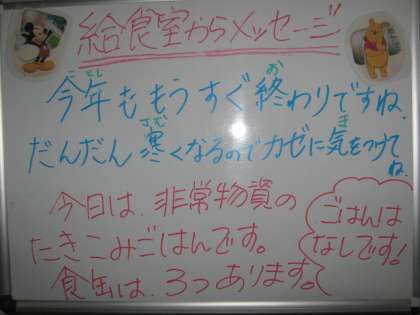 給食室からメッセージ
今年ももうすぐ終わりですね。
だんだん寒くなるのでカゼに気をつけてね。
今日は、非常物資の
たきこみごはんです。
食缶は、3つあります。
ごはんは
なしです!